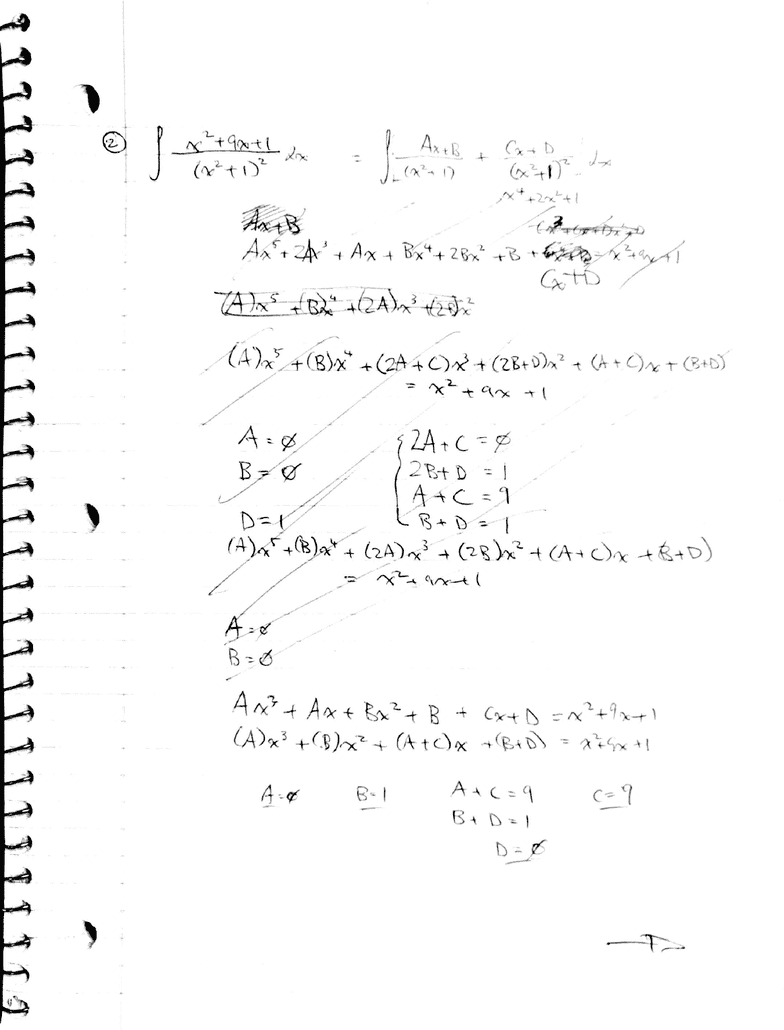 ② ∫ x²+9x+1 / (x²+1)² dx = ∫ Ax+B / (x²+1) + Cx+D / (x²+1)² dx
x⁴+2x²+1
Ax+B
Ax⁵+2Ax³+Ax+Bx⁴+2Bx²+B+ = x²+9x+1
Cx+D
(A)x⁵+(B)x⁴+(2A)x³+(2B)x²
(A)x⁵+(B)x⁴+(2A+C)x³+(2B+D)x²+(A+C)x+(B+D)
= x²+9x+1
A=∅ { 2A+C=∅
B=∅ 2B+D=1
A+C=9
D=1 B+D=1
(A)x⁵+(B)x⁴+(2A)x³+(2B)x²+(A+C)x+(B+D)
= x²+9x+1
A=∅
B=∅
Ax³+Ax+Bx²+B+Cx+D=x²+9x+1
(A)x³+(B)x²+(A+C)x+(B+D)=x²+9x+1
A=∅ B=1 A+C=9 C=9
B+D=1
D=∅